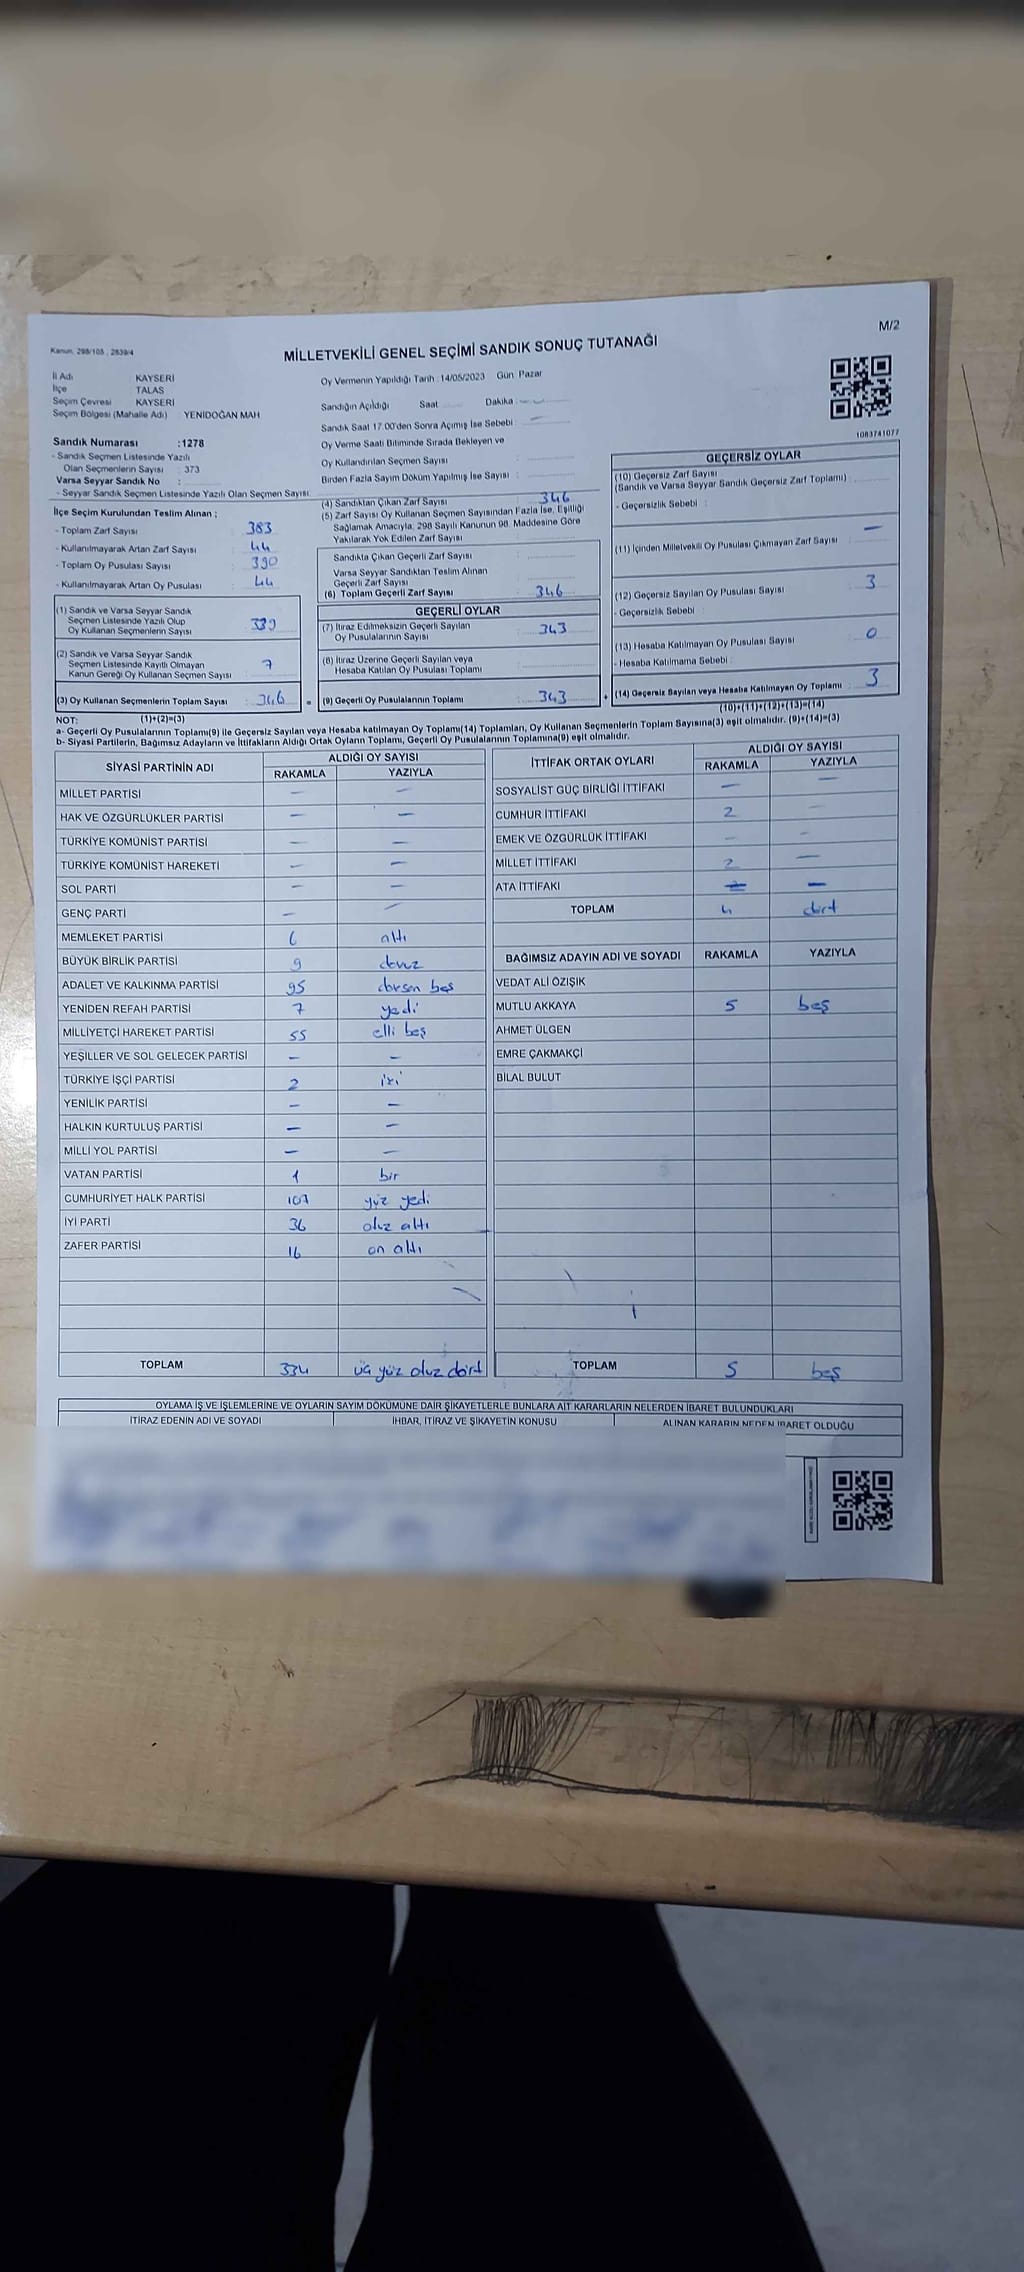 M/2
Kanun, 298/105 , 2839/4
MİLLETVEKİLİ GENEL SEÇİMİ SANDIK SONUÇ TUTANAĞI
İl Adı KAYSERİ
İlçe TALAS
Seçim Çevresi KAYSERİ
Seçim Bölgesi (Mahalle Adı) YENİDOĞAN MAH
Sandık Numarası :1278
- Sandık Seçmen Listesinde Yazılı
Olan Seçmenlerin Sayısı : 373
Varsa Seyyar Sandık No :
- Seyyar Sandık Seçmen Listesinde Yazılı Olan Seçmen Sayısı
Oy Vermenin Yapıldığı Tarih : 14/05/2023 Gün: Pazar
Sandığın Açıldığı Saat Dakika :
Sandık Saat 17.00'den Sonra Açımış İse Sebebi :
Oy Verme Saati Bitiminde Sırada Bekleyen ve
Oy Kullandırılan Seçmen Sayısı :
Birden Fazla Sayım Döküm Yapılmış İse Sayısı :
1083741077
İlçe Seçim Kurulundan Teslim Alınan ;
- Toplam Zarf Sayısı : 383
- Kullanılmayarak Artan Zarf Sayısı : 44
- Toplam Oy Pusulası Sayısı : 390
- Kullanılmayarak Artan Oy Pusulası : 44
(1) Sandık ve Varsa Seyyar Sandık
Seçmen Listesinde Yazılı Olup
Oy Kullanan Seçmenlerin Sayısı : 339
(2) Sandık ve Varsa Seyyar Sandık
Seçmen Listesinde Kayıtlı Olmayan
Kanun Gereği Oy Kullanan Seçmen Sayısı : 7
(3) Oy Kullanan Seçmenlerin Toplam Sayısı : 346 =
(4) Sandıktan Çıkan Zarf Sayısı : 346
(5) Zarf Sayısı Oy Kullanan Seçmen Sayısından Fazla İse, Eşitliği
Sağlamak Amacıyla, 298 Sayılı Kanunun 98. Maddesine Göre
Yakılarak Yok Edilen Zarf Sayısı :
Sandıkta Çıkan Geçerli Zarf Sayısı :
Varsa Seyyar Sandıktan Teslim Alınan
Geçerli Zarf Sayısı :
(6) Toplam Geçerli Zarf Sayısı : 346
GEÇERLİ OYLAR
(7) İtiraz Edilmeksizin Geçerli Sayılan
Oy Pusulalarının Sayısı : 343
(8) İtiraz Üzerine Geçerli Sayılan veya
Hesaba Katılan Oy Pusulası Toplamı :
(9) Geçerli Oy Pusulalarının Toplamı : 343 +
GEÇERSİZ OYLAR
(10) Geçersiz Zarf Sayısı
(Sandık ve Varsa Seyyar Sandık Geçersiz Zarf Toplamı) :
- Geçersizlik Sebebi :
(11) İçinden Milletvekili Oy Pusulası Çıkmayan Zarf Sayısı : —
(12) Geçersiz Sayılan Oy Pusulası Sayısı : 3
- Geçersizlik Sebebi :
(13) Hesaba Katılmayan Oy Pusulası Sayısı : 0
- Hesaba Katılmama Sebebi :
(14) Geçersiz Sayılan veya Hesaba Katılmayan Oy Toplamı : 3
(10)+(11)+(12)+(13)=(14)
NOT: (1)+(2)=(3)
a- Geçerli Oy Pusulalarının Toplamı(9) ile Geçersiz Sayılan veya Hesaba katılmayan Oy Toplamı(14) Toplamları, Oy Kullanan Seçmenlerin Toplam Sayısına(3) eşit olmalıdır. (9)+(14)=(3)
b- Siyasi Partilerin, Bağımsız Adayların ve İttifakların Aldığı Ortak Oyların Toplamı, Geçerli Oy Pusulalarının Toplamına(9) eşit olmalıdır.
SİYASİ PARTİNİN ADI ALDIĞI OY SAYISI
RAKAMLA YAZIYLA
MİLLET PARTİSİ — —
HAK VE ÖZGÜRLÜKLER PARTİSİ — —
TÜRKİYE KOMÜNİST PARTİSİ — —
TÜRKİYE KOMÜNİST HAREKETİ — —
SOL PARTİ — —
GENÇ PARTİ — —
MEMLEKET PARTİSİ 6 altı
BÜYÜK BİRLİK PARTİSİ 9 dokuz
ADALET VE KALKINMA PARTİSİ 95 doksan beş
YENİDEN REFAH PARTİSİ 7 yedi
MİLLİYETÇİ HAREKET PARTİSİ 55 elli beş
YEŞİLLER VE SOL GELECEK PARTİSİ — —
TÜRKİYE İŞÇİ PARTİSİ 2 iki
YENİLİK PARTİSİ — —
HALKIN KURTULUŞ PARTİSİ — —
MİLLİ YOL PARTİSİ — —
VATAN PARTİSİ 1 bir
CUMHURİYET HALK PARTİSİ 107 yüz yedi
İYİ PARTİ 36 otuz altı
ZAFER PARTİSİ 16 on altı
TOPLAM 334 üç yüz otuz dört
İTTİFAK ORTAK OYLARI ALDIĞI OY SAYISI
RAKAMLA YAZIYLA
SOSYALİST GÜÇ BİRLİĞİ İTTİFAKI — —
CUMHUR İTTİFAKI 2 —
EMEK VE ÖZGÜRLÜK İTTİFAKI — —
MİLLET İTTİFAKI 2 —
ATA İTTİFAKI — —
TOPLAM 4 dört
BAĞIMSIZ ADAYIN ADI VE SOYADI RAKAMLA YAZIYLA
VEDAT ALİ ÖZIŞIK
MUTLU AKKAYA 5 beş
AHMET ÜLGEN
EMRE ÇAKMAKÇİ
BİLAL BULUT
TOPLAM 5 beş
OYLAMA İŞ VE İŞLEMLERİNE VE OYLARIN SAYIM DÖKÜMÜNE DAİR ŞİKAYETLERLE BUNLARA AİT KARARLARIN NELERDEN İBARET BULUNDUKLARI
İTİRAZ EDENİN ADI VE SOYADI İHBAR, İTİRAZ VE ŞİKAYETİN KONUSU ALINAN KARARIN NEDEN İBARET OLDUĞU